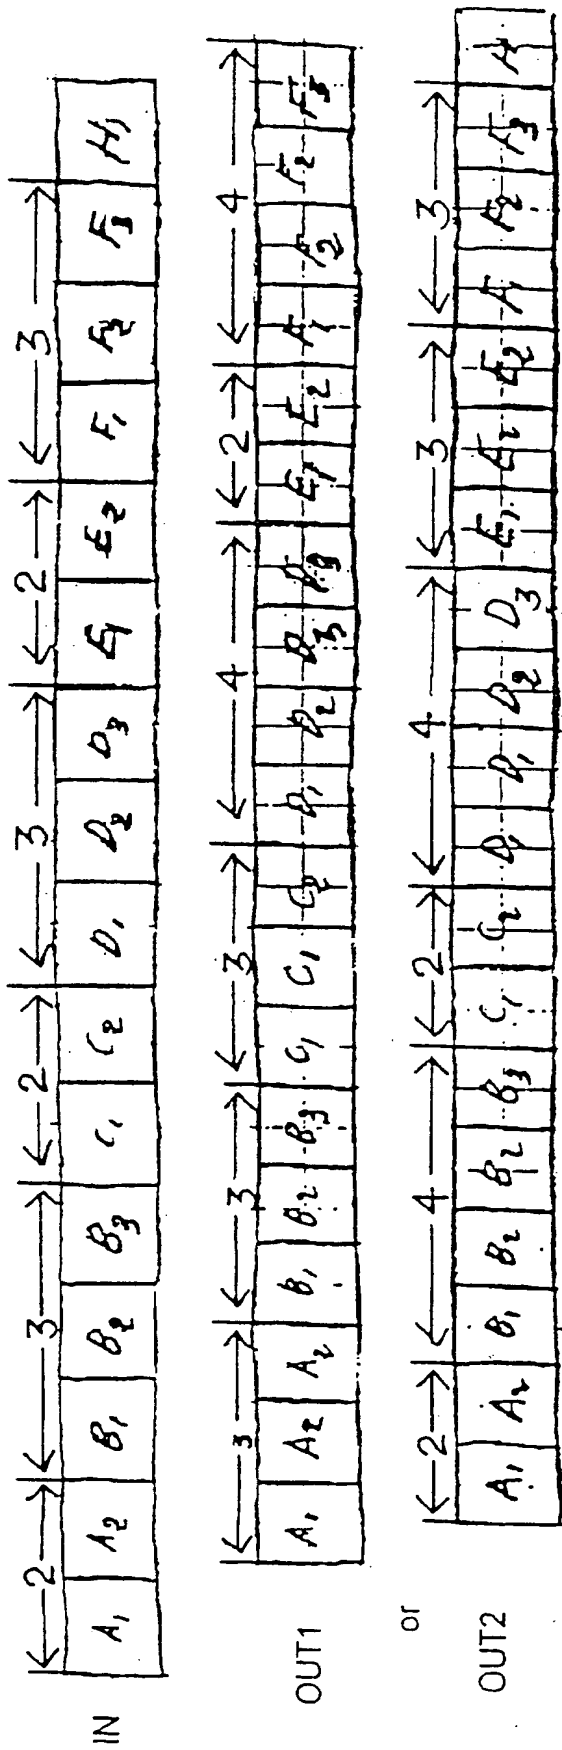 2 3 2 3 2 3
IN A₁ A₂ B₁ B₂ B₃ C₁ C₂ D₁ D₂ D₃ E₁ E₂ F₁ F₂ F₃ H₁
3 3 3 4 2 4
OUT1 A₁ A₂ A₂ B₁ B₂ B₃ C₁ C₁ C₂ D₁ D₂ D₃ D₃ E₁ E₂ F₁ F₂ F₂ F₃
or
2 4 2 4 3 3
OUT2 A₁ A₂ B₁ B₂ B₂ B₃ C₁ C₂ D₁ D₁ D₂ D₃ E₁ E₂ E₂ F₁ F₂ F₃